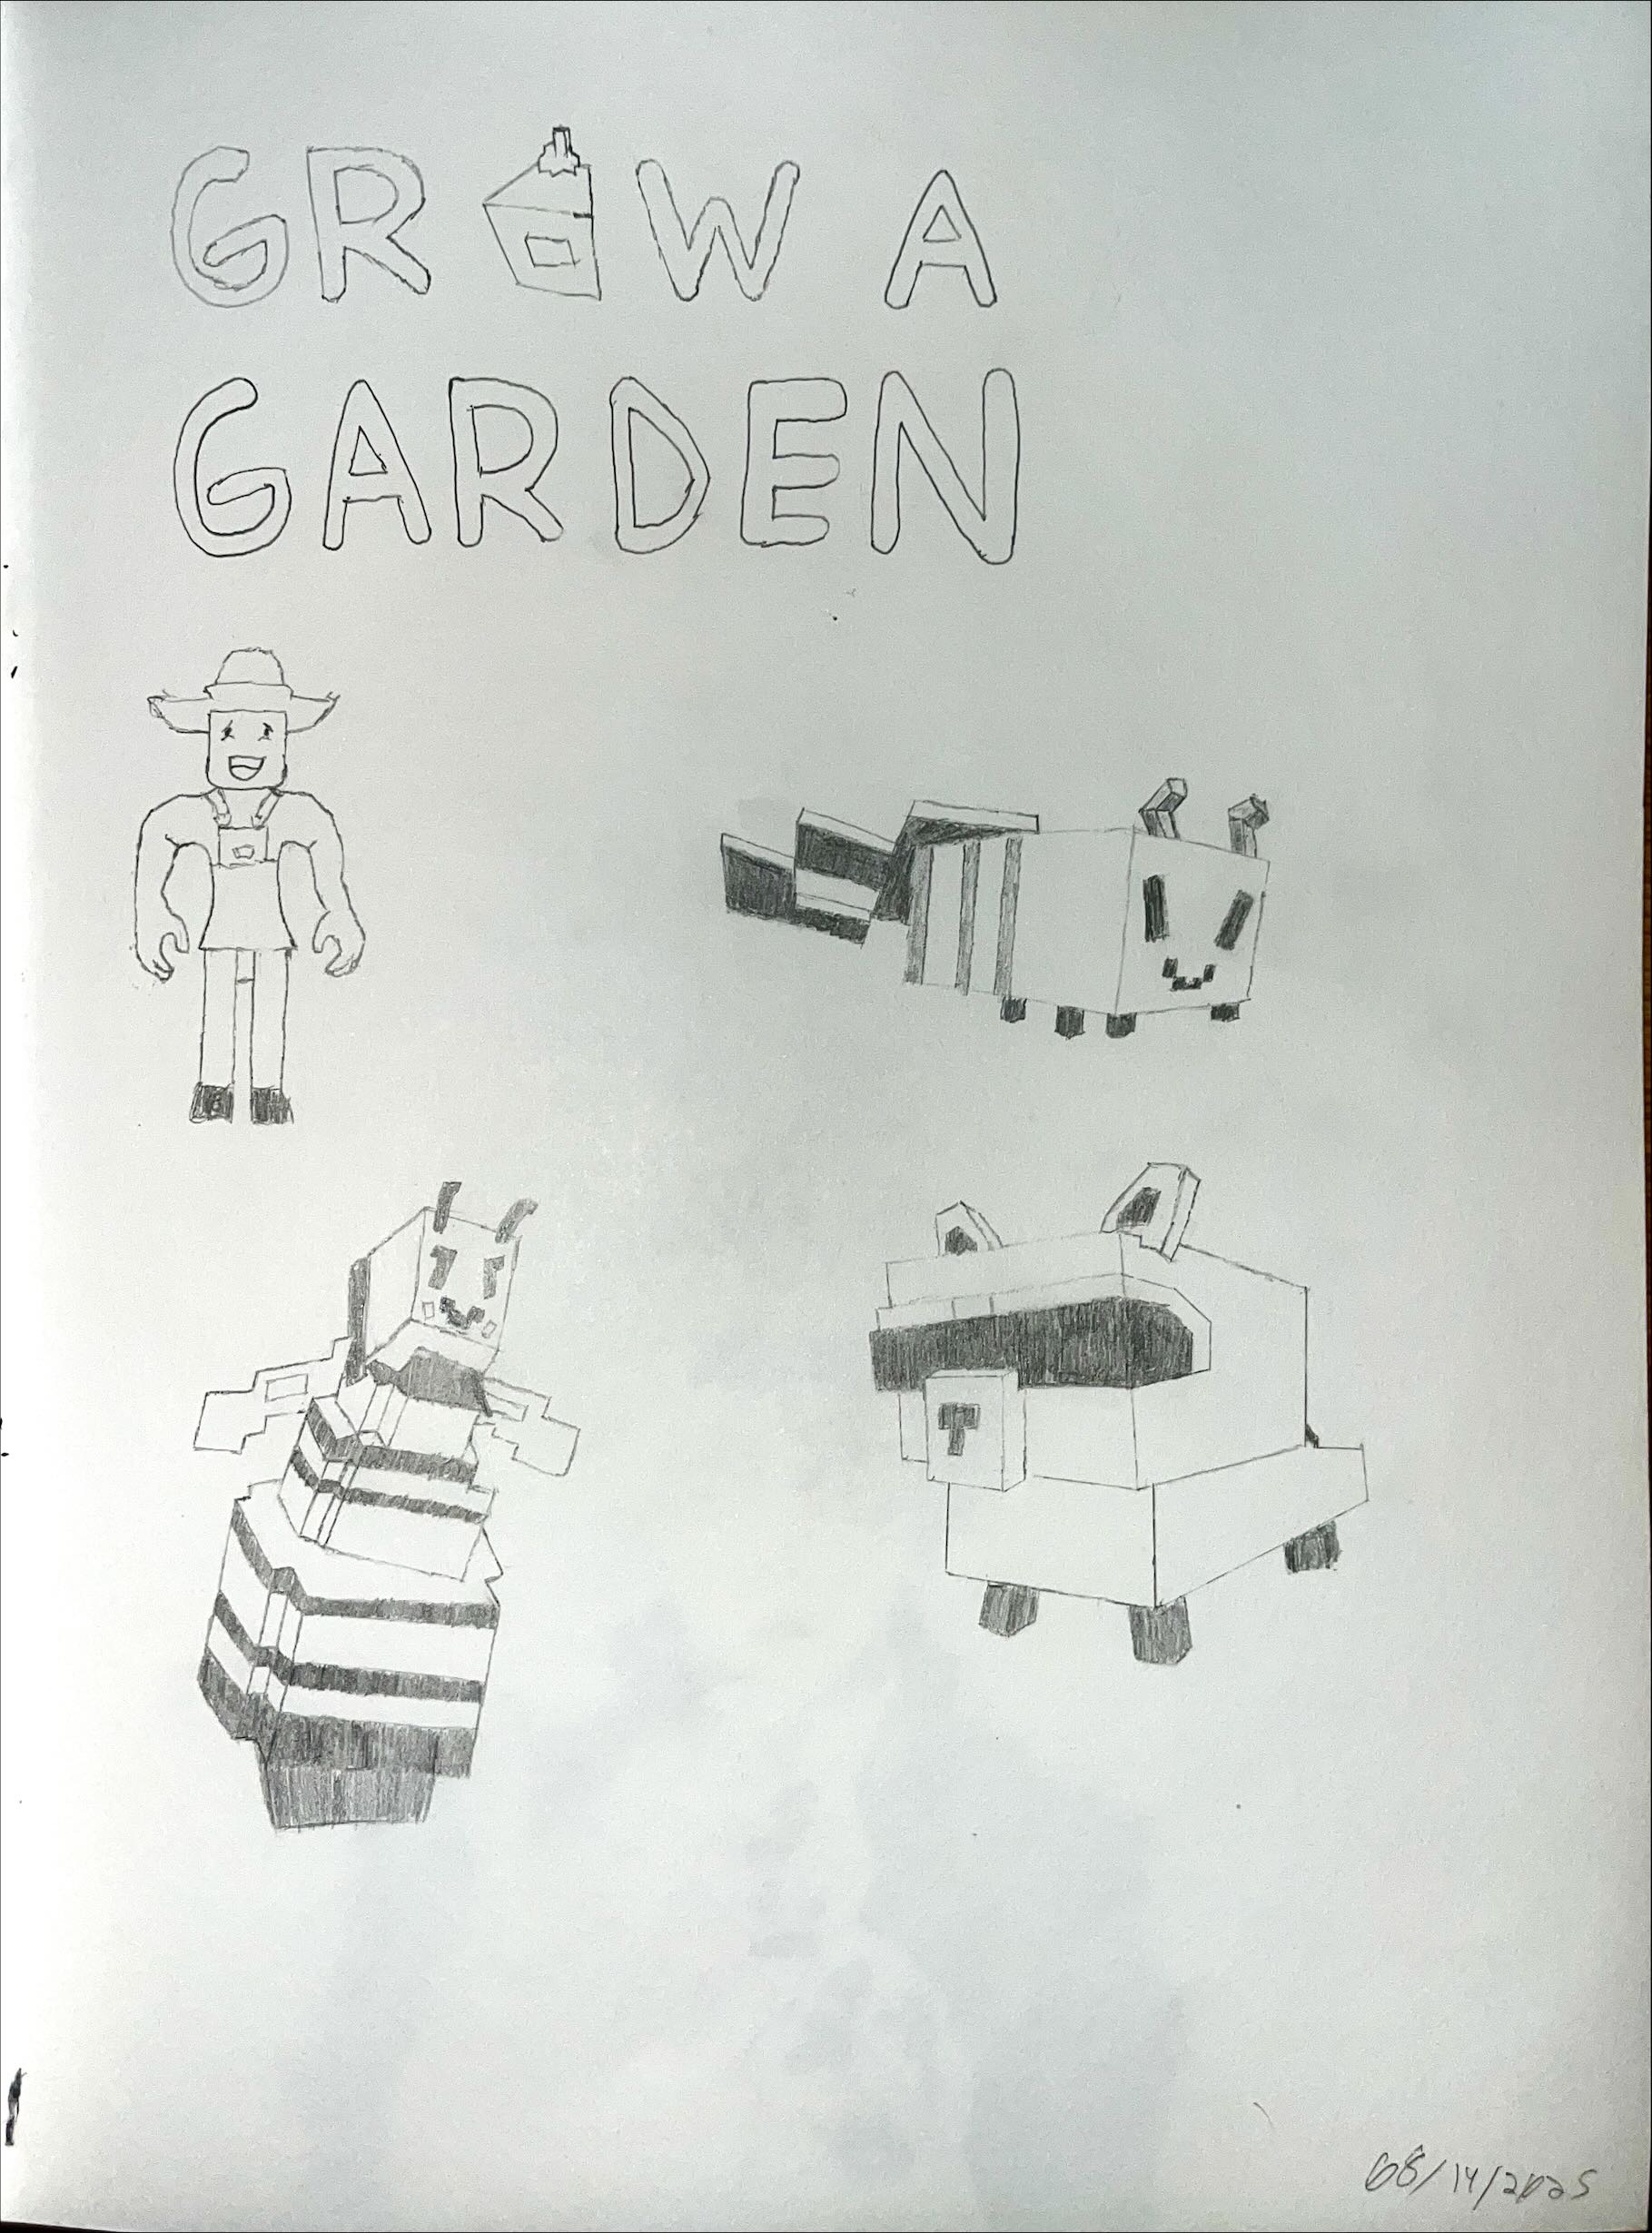 GROW A
GARDEN
08/14/2025